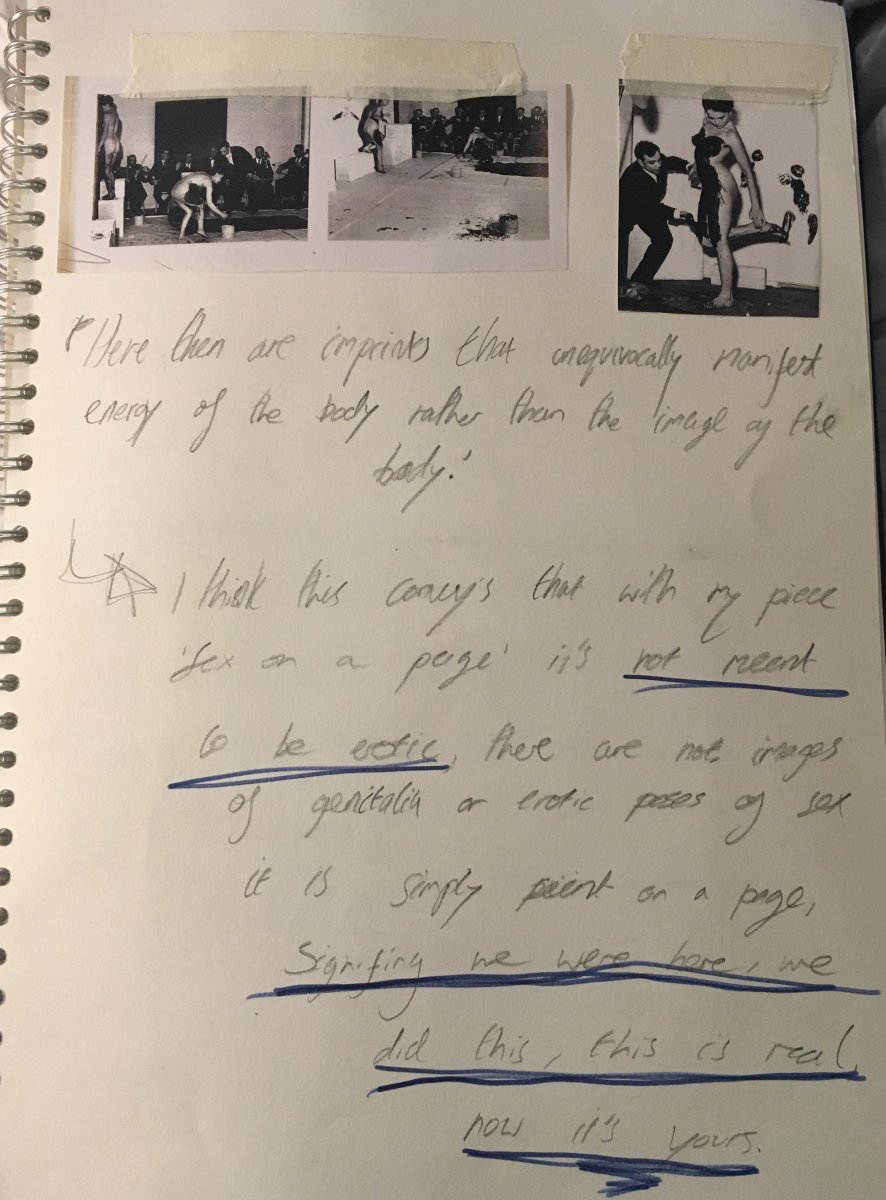 "Here then are imprints that unequivocally manifest
energy of the body rather than the image of the
body.'
I think this convey's that with my piece
'sex on a page' it's not meant
to be erotic, there are not images
of genitalia or erotic poses of sex
it is simply paint on a page,
Signifing we were here, we
did this, this is real
now it's yours.